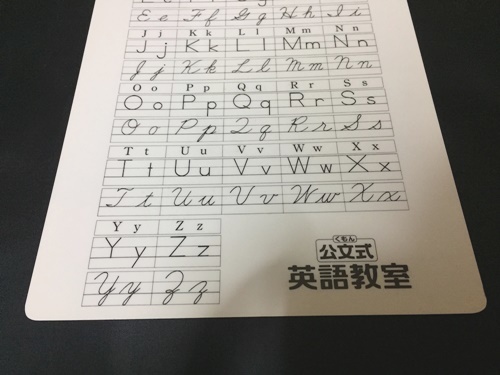 E e F f G g H h I i
J j K k L l M m N n
J j K k L l M m N n
J j K k L l M m N n
O o P p Q q R r S s
O o P p Q q R r S s
O o P p Q q R r S s
T t U u V v W w X x
T t U u V v W w X x
T t U u V v W w X x
Y y Z z
Y y Z z
Y y Z z
くもん
公文式
英語教室